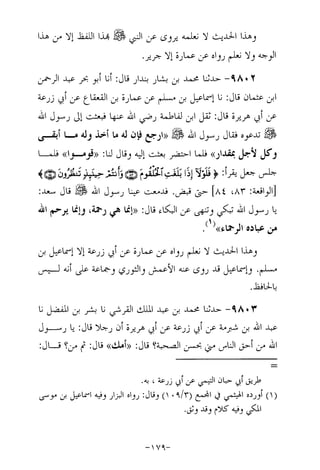 وهذا الحديث لا نعلمه يروى عن النبي ﷺ بهذا اللفظ إلا من هذا
الوجه ولا نعلم رواه عن عمارة إلا جرير.
٩٨٠٢- حدثنا محمد بن بشار بندار قال: أنا أبو بحر عبد الرحمن
ابن عثمان قال: نا إسماعيل بن مسلم عن عمارة بن القعقاع عن أبي زرعة
عن أبي هريرة قال: ثقل ابن لفاطمة رضي الله عنها فبعثت إلى رسول الله
ﷺ تدعوه فقال رسول الله ﷺ «ارجع فإن له ما أخذ وله مـــا أبقـــى
وكل لأجل بمقدار» فلما احتضر بعثت إليه وقال لنا: «قومـــوا» فلمـــا
جلس جعل يقرأ: ﴿ فَلَوْلَآ إِذَا بَلَغَتِ ٱلْحُلْقُومَ ۝ وَأَنتُمْ حِينَئِذٍ تَنظُرُونَ ۝ ﴾
[الواقعة: ٨٣، ٨٤] حتى قبض. فدمعت عينا رسول الله ﷺ قال سعد:
يا رسول الله تبكي وتنهى عن البكاء قال: «إنما هي رحمة، وإنما يرحم الله
من عباده الرحماء»(١).
وهذا الحديث لا نعلم رواه عن عمارة عن أبي زرعة إلا إسماعيل بن
مسلم. وإسماعيل قد روى عنه الأعمش والثوري وجماعة على أنه لـــيس
بالحافظ.
٩٨٠٣- حدثنا محمد بن عبد الملك القرشي نا بشر بن المفضل نا
عبد الله بن شبرمة عن أبي زرعة عن أبي هريرة أن رجلا قال: يا رســـول
الله من أحق الناس مني بحسن الصحبة؟ قال: «أمك» قال: ثم من؟ قـــال:
=
طريق أبي حبان التيمي عن أبي زرعة ، به.
(١) أورده الهيثمي في المجمع (١٠٩/٣) وقال: رواه البزار وفيه اسماعيل بن موسى
المكي وفيه كلام وقد وثق.
-١٧٩-